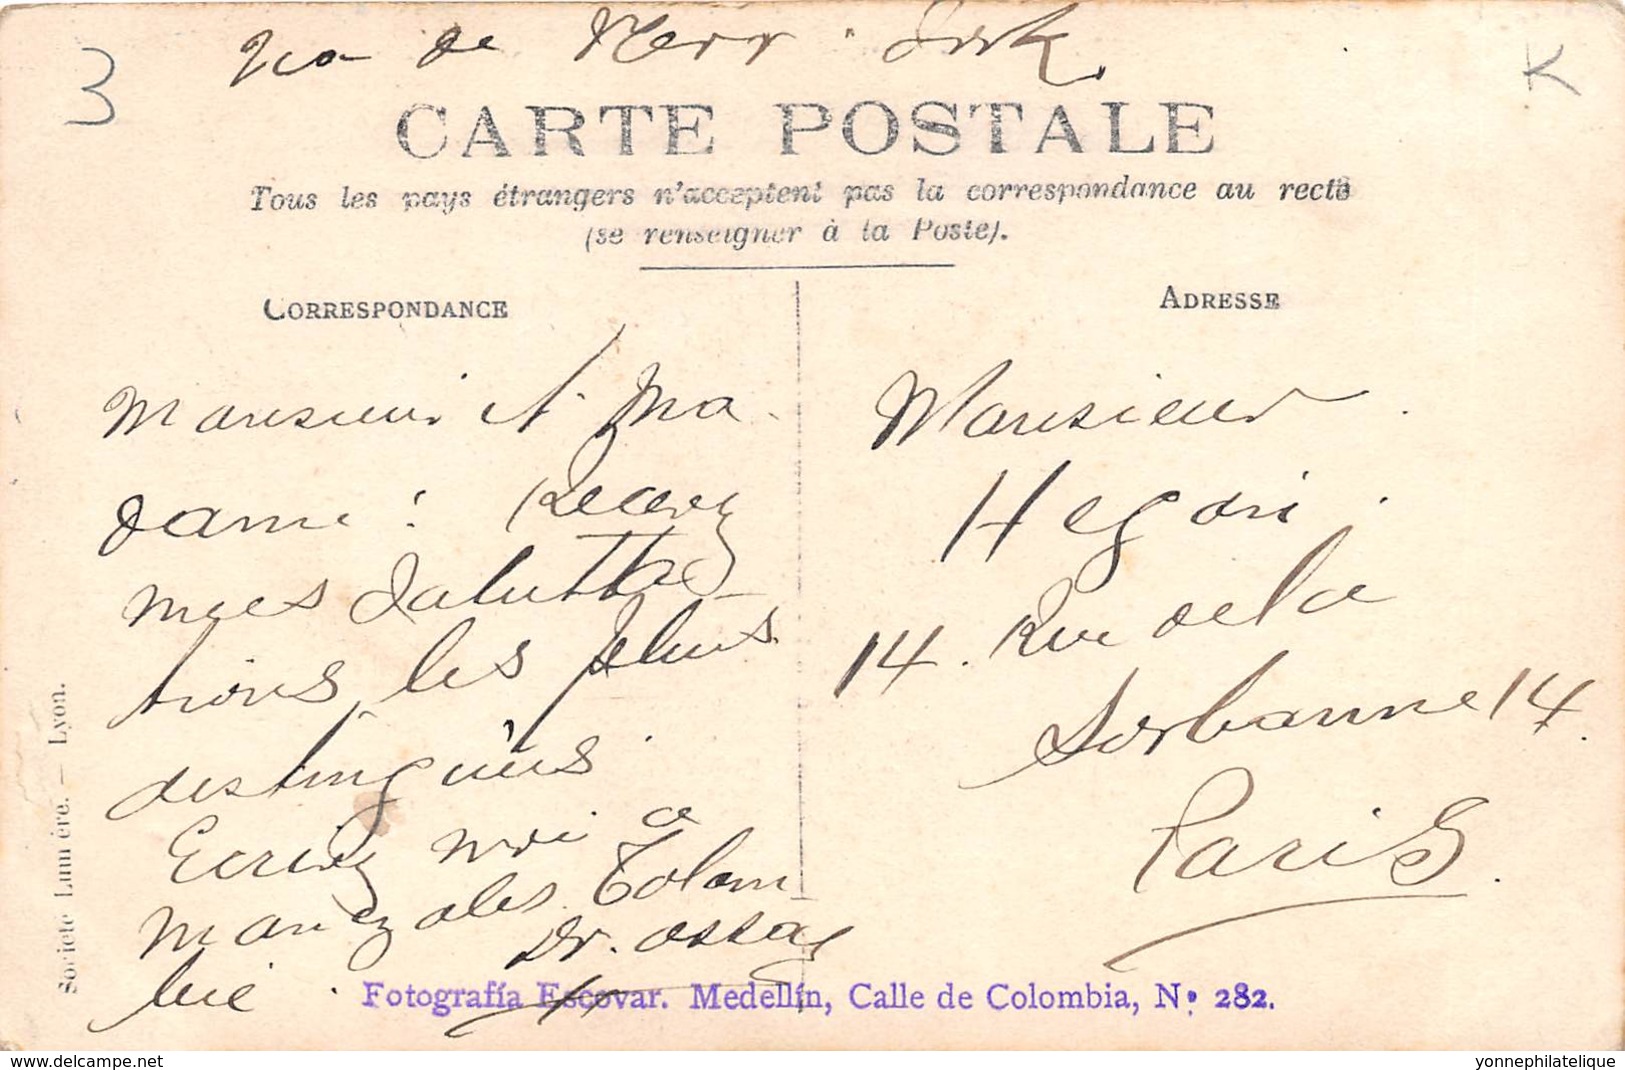 3
K
Via de New York.
CARTE POSTALE
Tous les pays étrangers n'acceptent pas la correspondance au recto
(se renseigner à la Poste).
CORRESPONDANCE
Monsieur et Ma-
dame: Recevez
mes salutta-
tions les plus
distingués.
Ecrivez moi a
Manizales. Colom
bie.
Dr. Ossa
ADRESSE
Monsieur
14. Rue de la
Sorbonne 14.
Paris.
Société Lumière. — Lyon.
Fotografía Escovar. Medellín, Calle de Colombia, Nº 282.
delcampe.net
yonnephilatelique